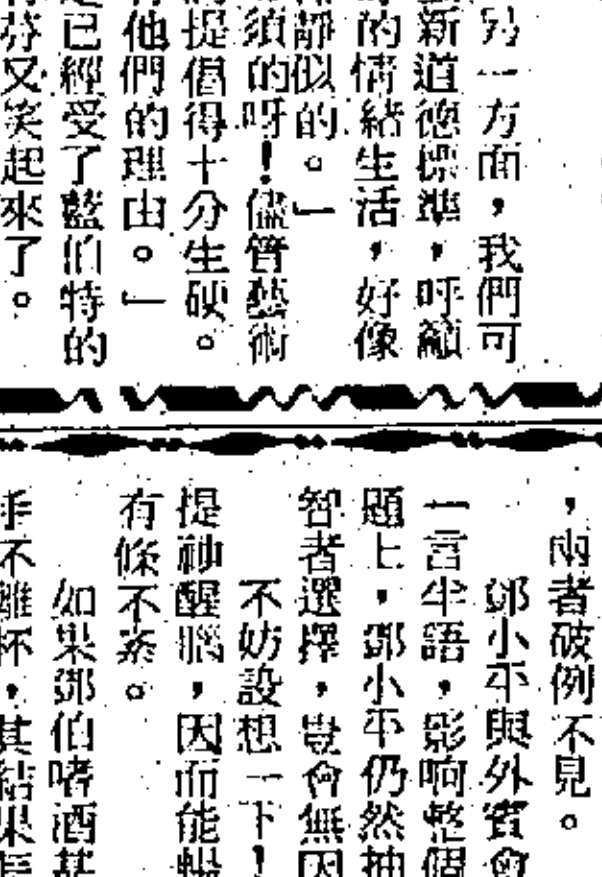 另一方面，我們可
新道德標準，呼籲
的情緒生活，好像
靜似的。」
須的呀！儘管藝術
提倡得十分生硬。
他們的理由。」
已經受了藍伯特的
芬又笑起來了。
，兩者破例不見。
鄧小平與外賓會
一言半語，影响整個
題上，鄧小平仍然抽
智者選擇，豈會無因
不妨設想一下！
提神醒腦，因而能暢
有條不紊。
如果鄧伯嗜酒甚
手不離杯，其結果